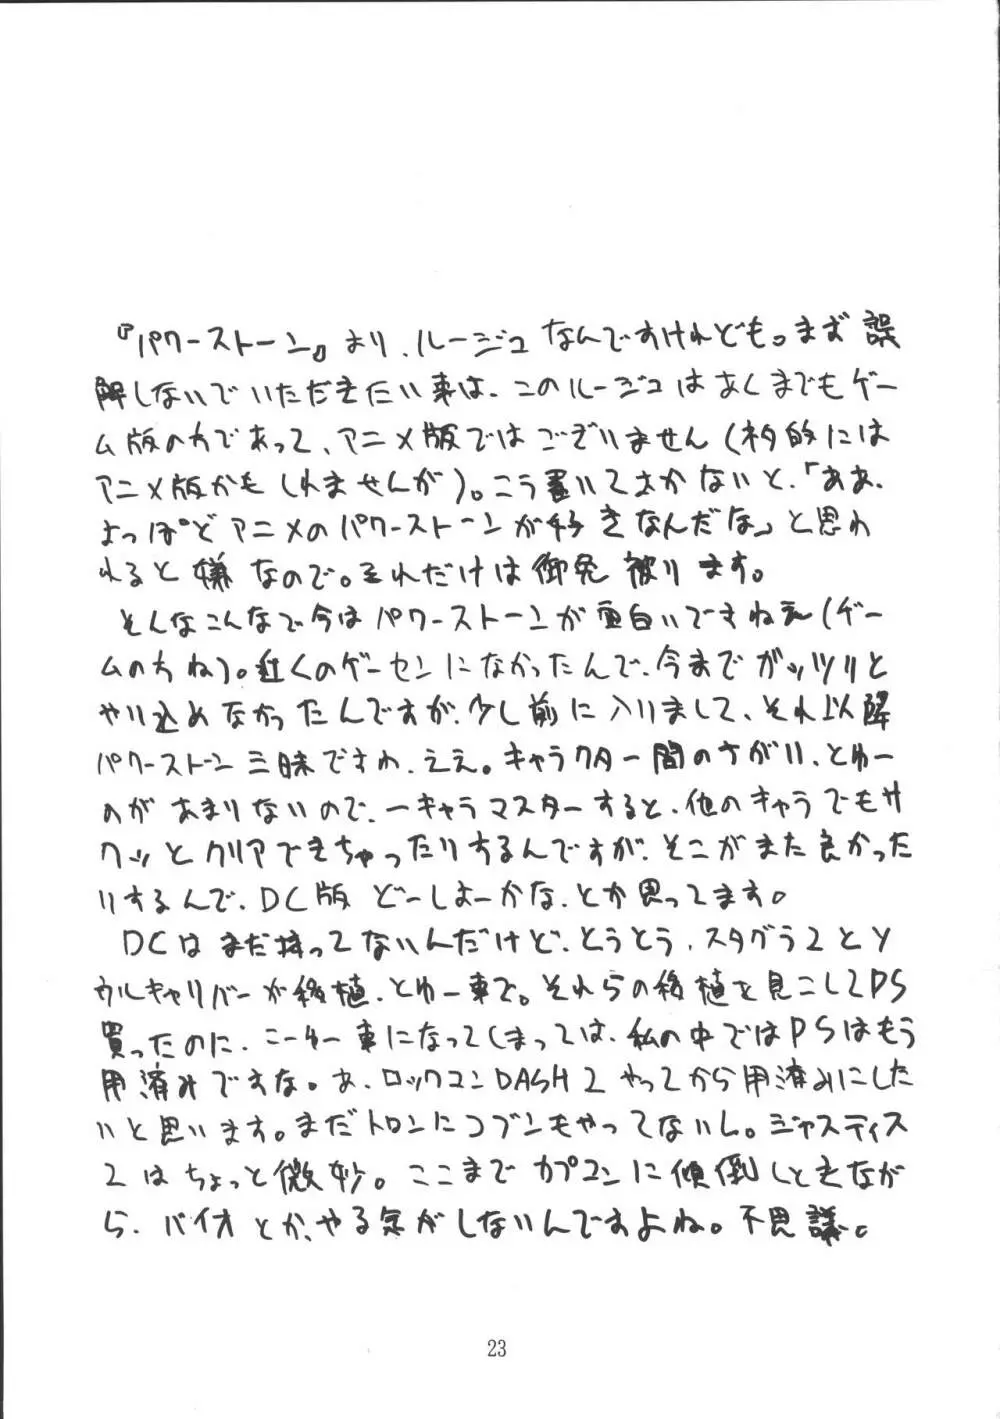 『パワーストーン』より、ルージュなんですけれども。まず誤
解しないでいただきたい事は、このルージュはあくまでもゲー
ム版の方であって、アニメ版ではございません(ネタ的には
アニメ版かもしれませんが)。こう書いておかないと、「ああ、
よっぽどアニメのパワーストーンが好きなんだな」と思わ
れると嫌なので。それだけは御免被ります。
そんなこんなで今はパワーストーンが面白いですねえ(ゲー
ムの方ね)。近くのゲーセンになかったんで、今までガッツリと
やり込めなかったんですが、少し前に入りまして、それ以降
パワーストーン三昧ですわ、ええ。キャラクター間のさがり、とゆー
のがあまりないので、一キャラマスターすると、他のキャラでもサ
クッとクリアできちゃったりするんですが、そこがまた良かった
りするんで、DC版どーしよーかな、とか思ってます。
DCはまだ持ってないんだけど、とうとう、スタグラ2とソ
ウルキャリバーが移植、とゆー事で。それらの移植を見こしてPS
買ったのに、こーゆー事になってしまっては、私の中ではPSはもう
用済みですな。あ、ロックコンDASH2やってから用済みにした
いと思います。まだトロンにコブンもやってないし。ジャスティス
2はちょっと微妙。ここまでカプコンに傾倒しときなが
ら、バイオとか、やる気がしないんですよね。不思議。
23